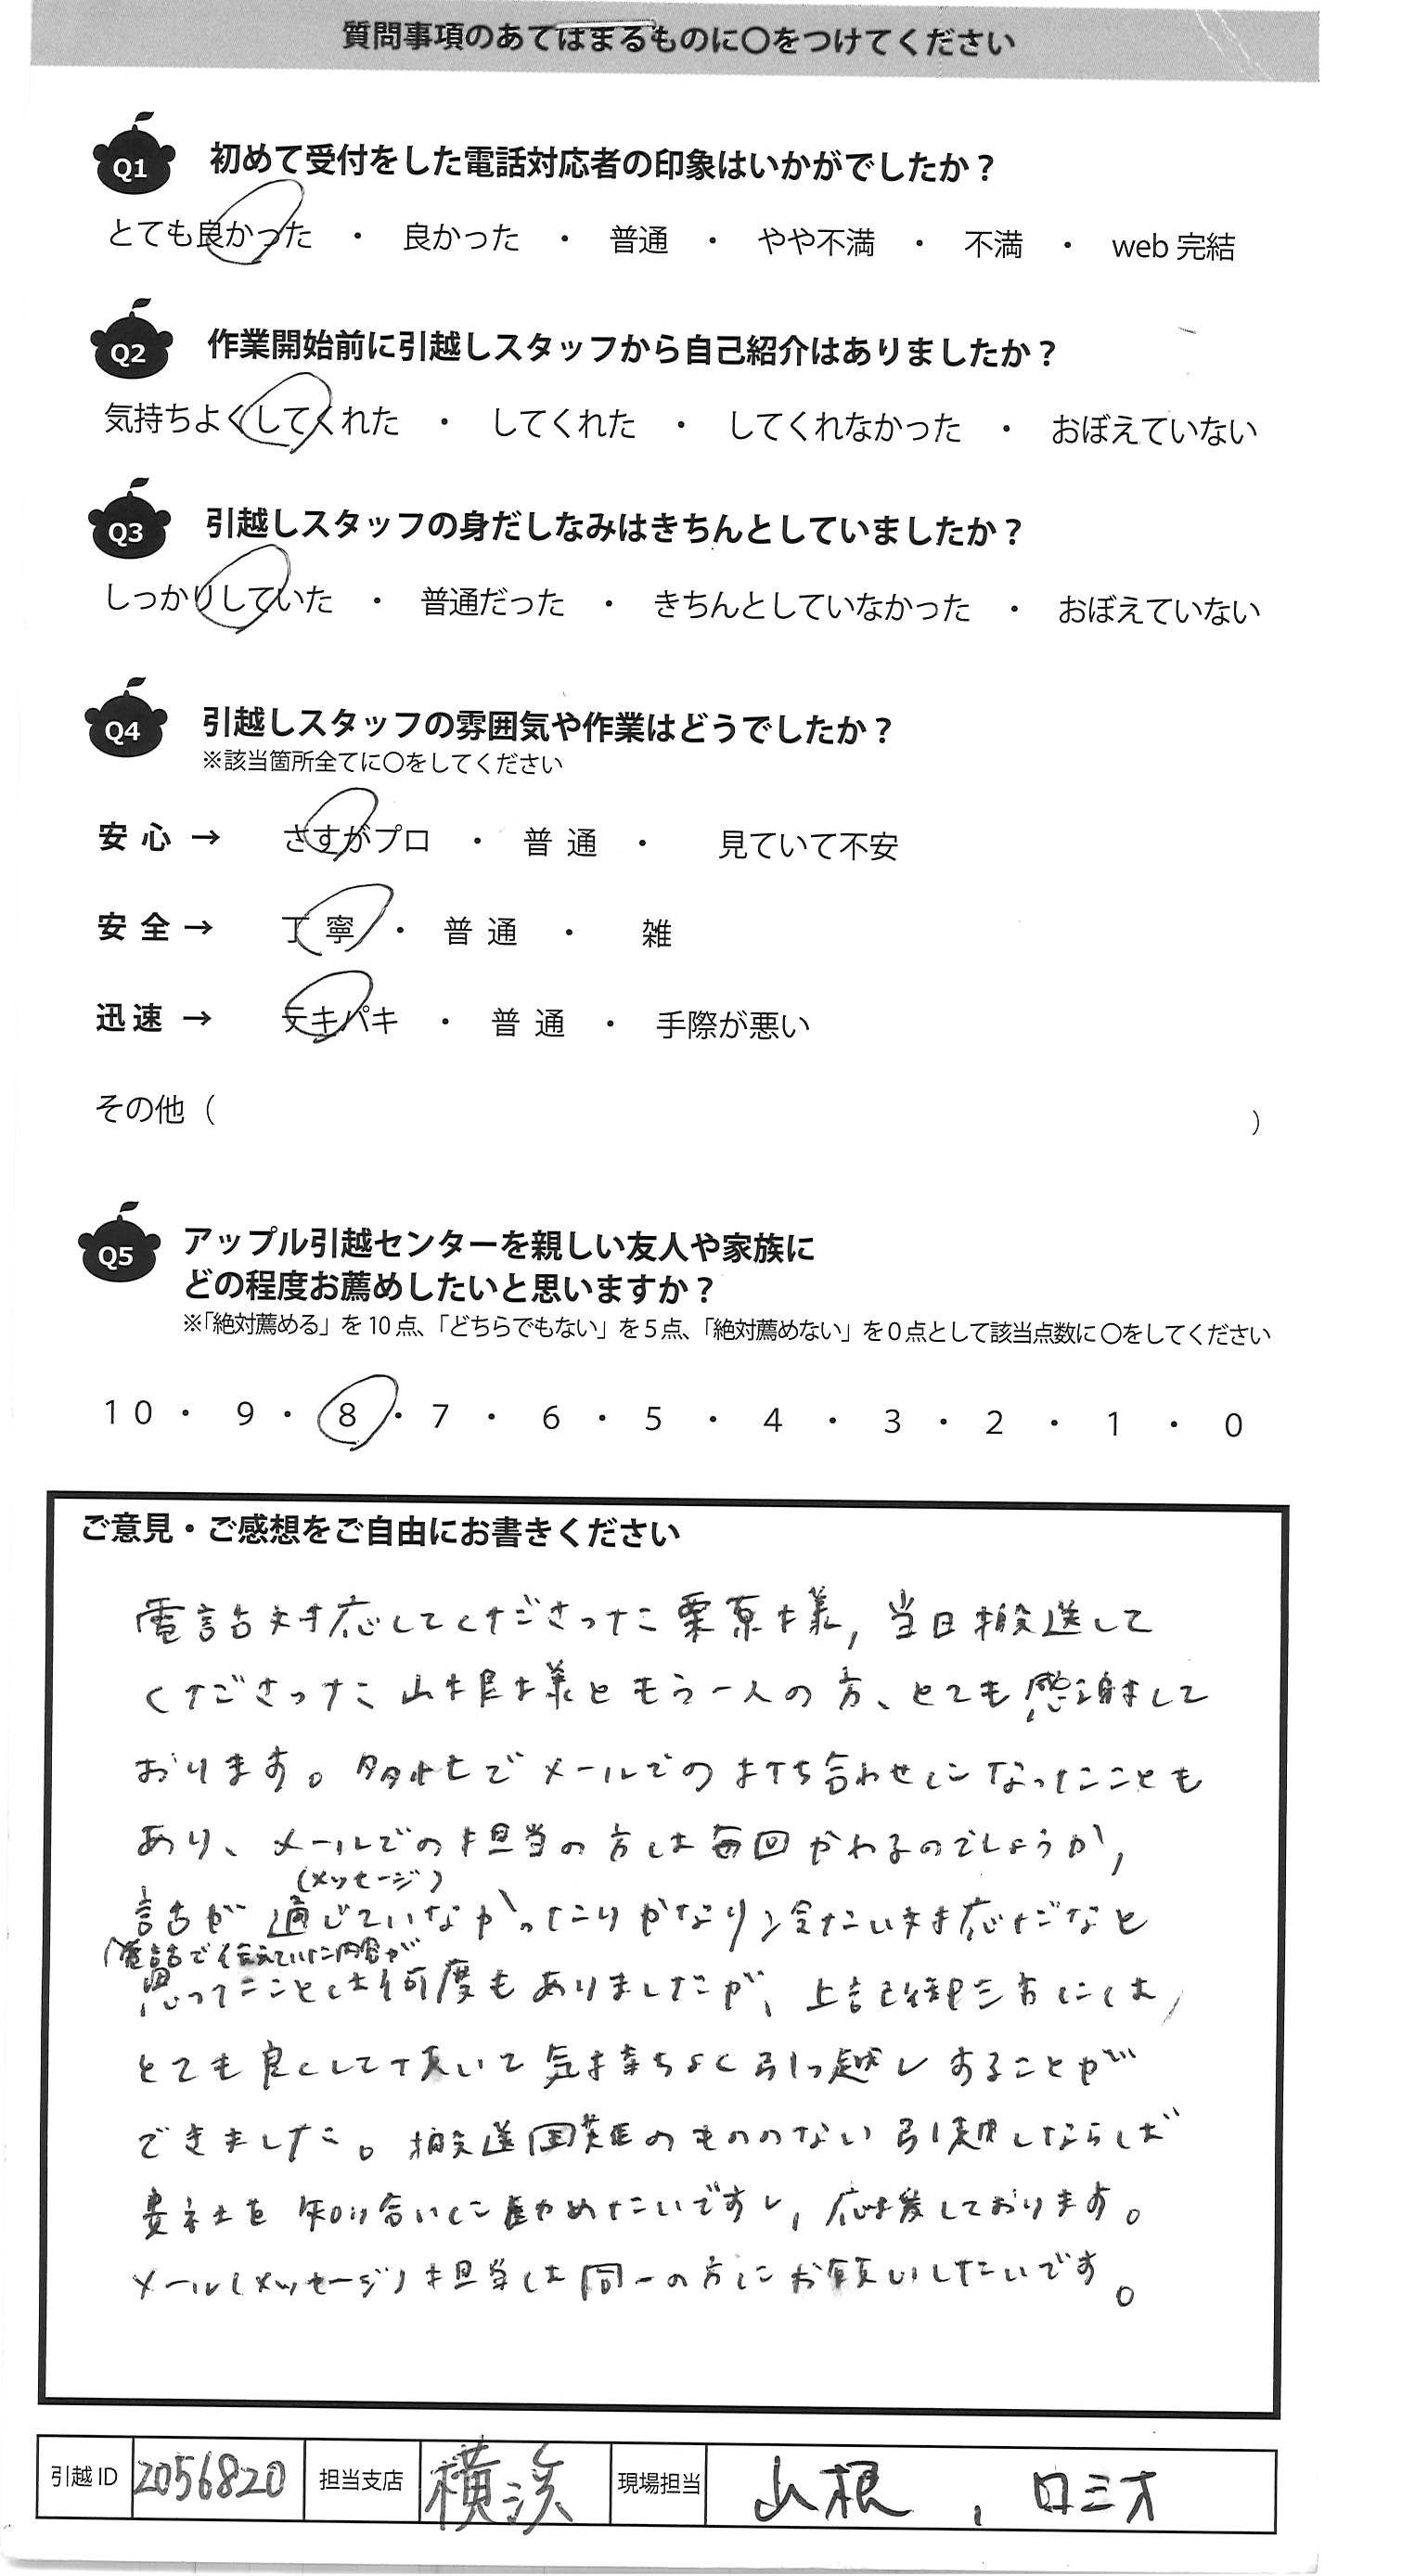 質問事項のあてはまるものに〇をつけてください
Q1 初めて受付をした電話対応者の印象はいかがでしたか？
とても良かった ・ 良かった ・ 普通 ・ やや不満 ・ 不満 ・ web完結
Q2 作業開始前に引越しスタッフから自己紹介はありましたか？
気持ちよくしてくれた ・ してくれた ・ してくれなかった ・ おぼえていない
Q3 引越しスタッフの身だしなみはきちんとしていましたか？
しっかりしていた ・ 普通だった ・ きちんとしていなかった ・ おぼえていない
Q4 引越しスタッフの雰囲気や作業はどうでしたか？
※該当箇所全てに〇をしてください
安心 → さすがプロ ・ 普通 ・ 見ていて不安
安全 → 丁寧 ・ 普通 ・ 雑
迅速 → テキパキ ・ 普通 ・ 手際が悪い
その他（ ）
Q5 アップル引越センターを親しい友人や家族に
どの程度お薦めしたいと思いますか？
※「絶対薦める」を10点、「どちらでもない」を5点、「絶対薦めない」を0点として該当点数に〇をしてください
10 ・ 9 ・ 8 ・ 7 ・ 6 ・ 5 ・ 4 ・ 3 ・ 2 ・ 1 ・ 0
ご意見・ご感想をご自由にお書きください
電話対応してくださった栗原様, 当日搬送して
くださった山根様ともう一人の方、とても感謝して
おります。多忙でメールでの打ち合わせになったことも
あり、メールでの担当の方は毎回かわるのでしょうか,
(メッセージ)
話が通じていなかったりかなり冷たい対応だなと
(電話で伝えていた内容が
思ってことは何度もありましたが、上記御三方には,
とても良くして頂いて気持ちよく引っ越しすることが
できました。搬送困難のもののない引越しならば
貴社を知り合いに勧めたいですし, 応援しております。
メール(メッセージ)担当は同一の方にお願いしたいです。
引越ID 2056820 担当支店 横浜 現場担当 山根 , ロミオ